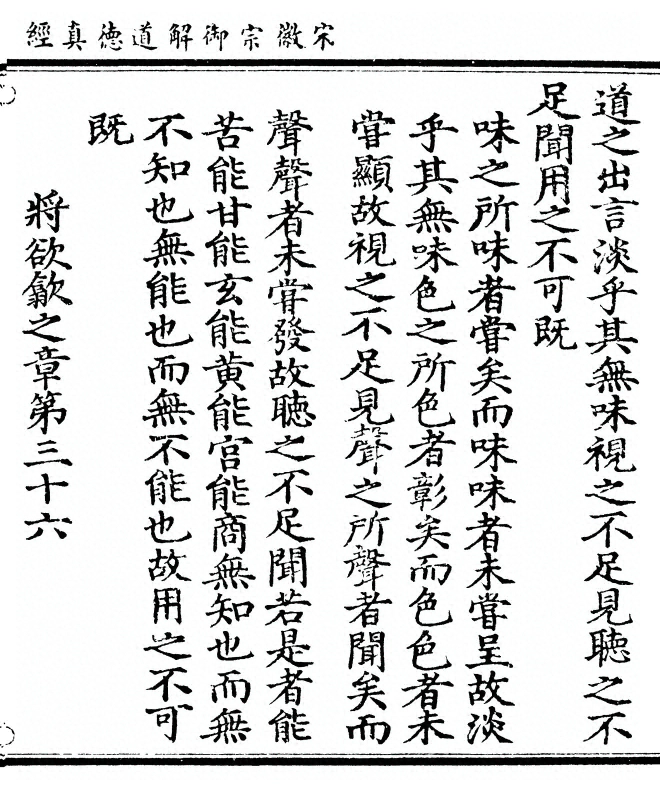 宋徽宗御解道德真經
道之出言淡乎其無味視之不足見聽之不
足聞用之不可既
味之所味者嘗矣而味味者未嘗呈故淡
乎其無味色之所色者彰矣而色色者未
嘗顯故視之不足見聲之所聲者聞矣而
聲聲者未嘗發故聽之不足聞若是者能
苦能甘能玄能黄能宫能商無知也而無
不知也無能也而無不能也故用之不可
既
將欲歙之章第三十六